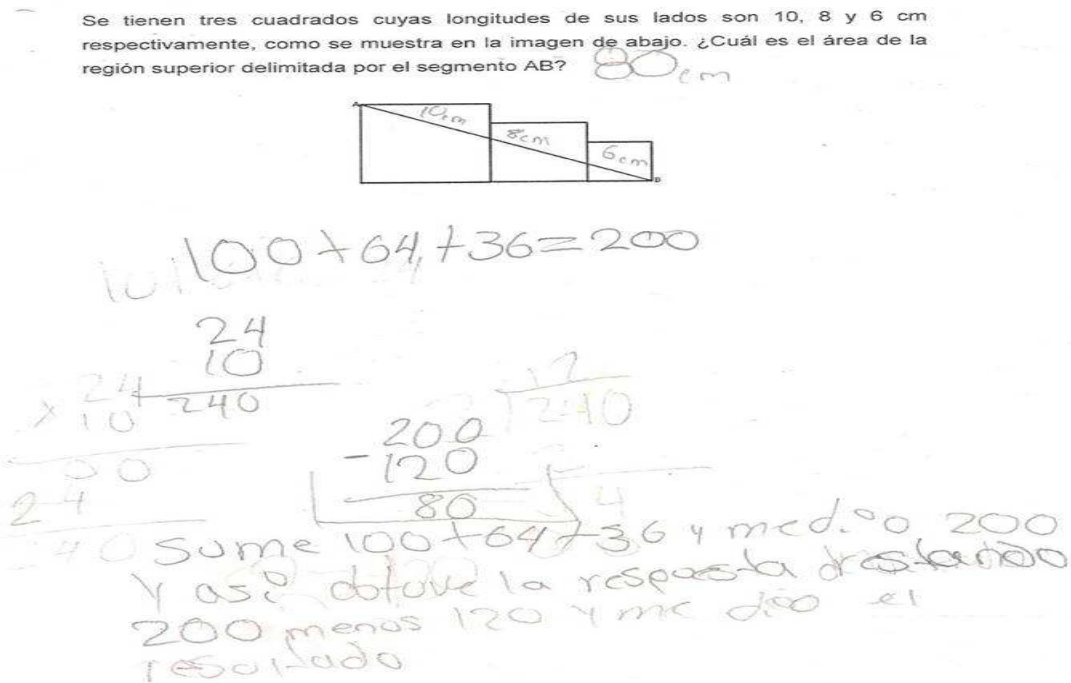 Se tienen tres cuadrados cuyas longitudes de sus lados son 10, 8 y 6 cm
respectivamente, como se muestra en la imagen de abajo. ¿Cuál es el área de la
región superior delimitada por el segmento AB? 80cm
A
10cm
8cm
6cm
B
100+64+36=200
24
10
240
24
x 10
00
24
240
12
240
200
-120
80
4
sume 100+64+36 y me dio 200
Y así obtuve la respuesta
200 menos 120 y me dio el
resultado